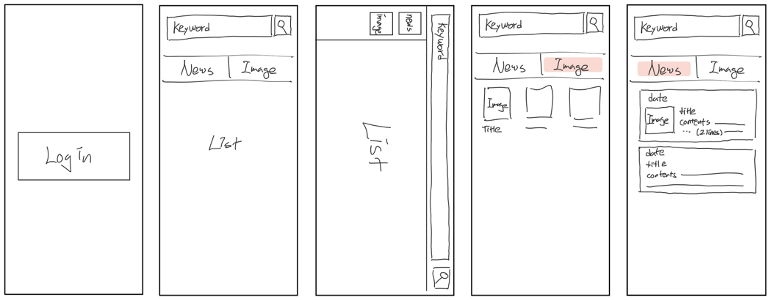 Log in
Keyword
News
Image
List
Keyword
news
image
List
Keyword
News
Image
Image
Title
Keyword
News
Image
date
Image
title
contents
... (2 lines)
date
title
contents